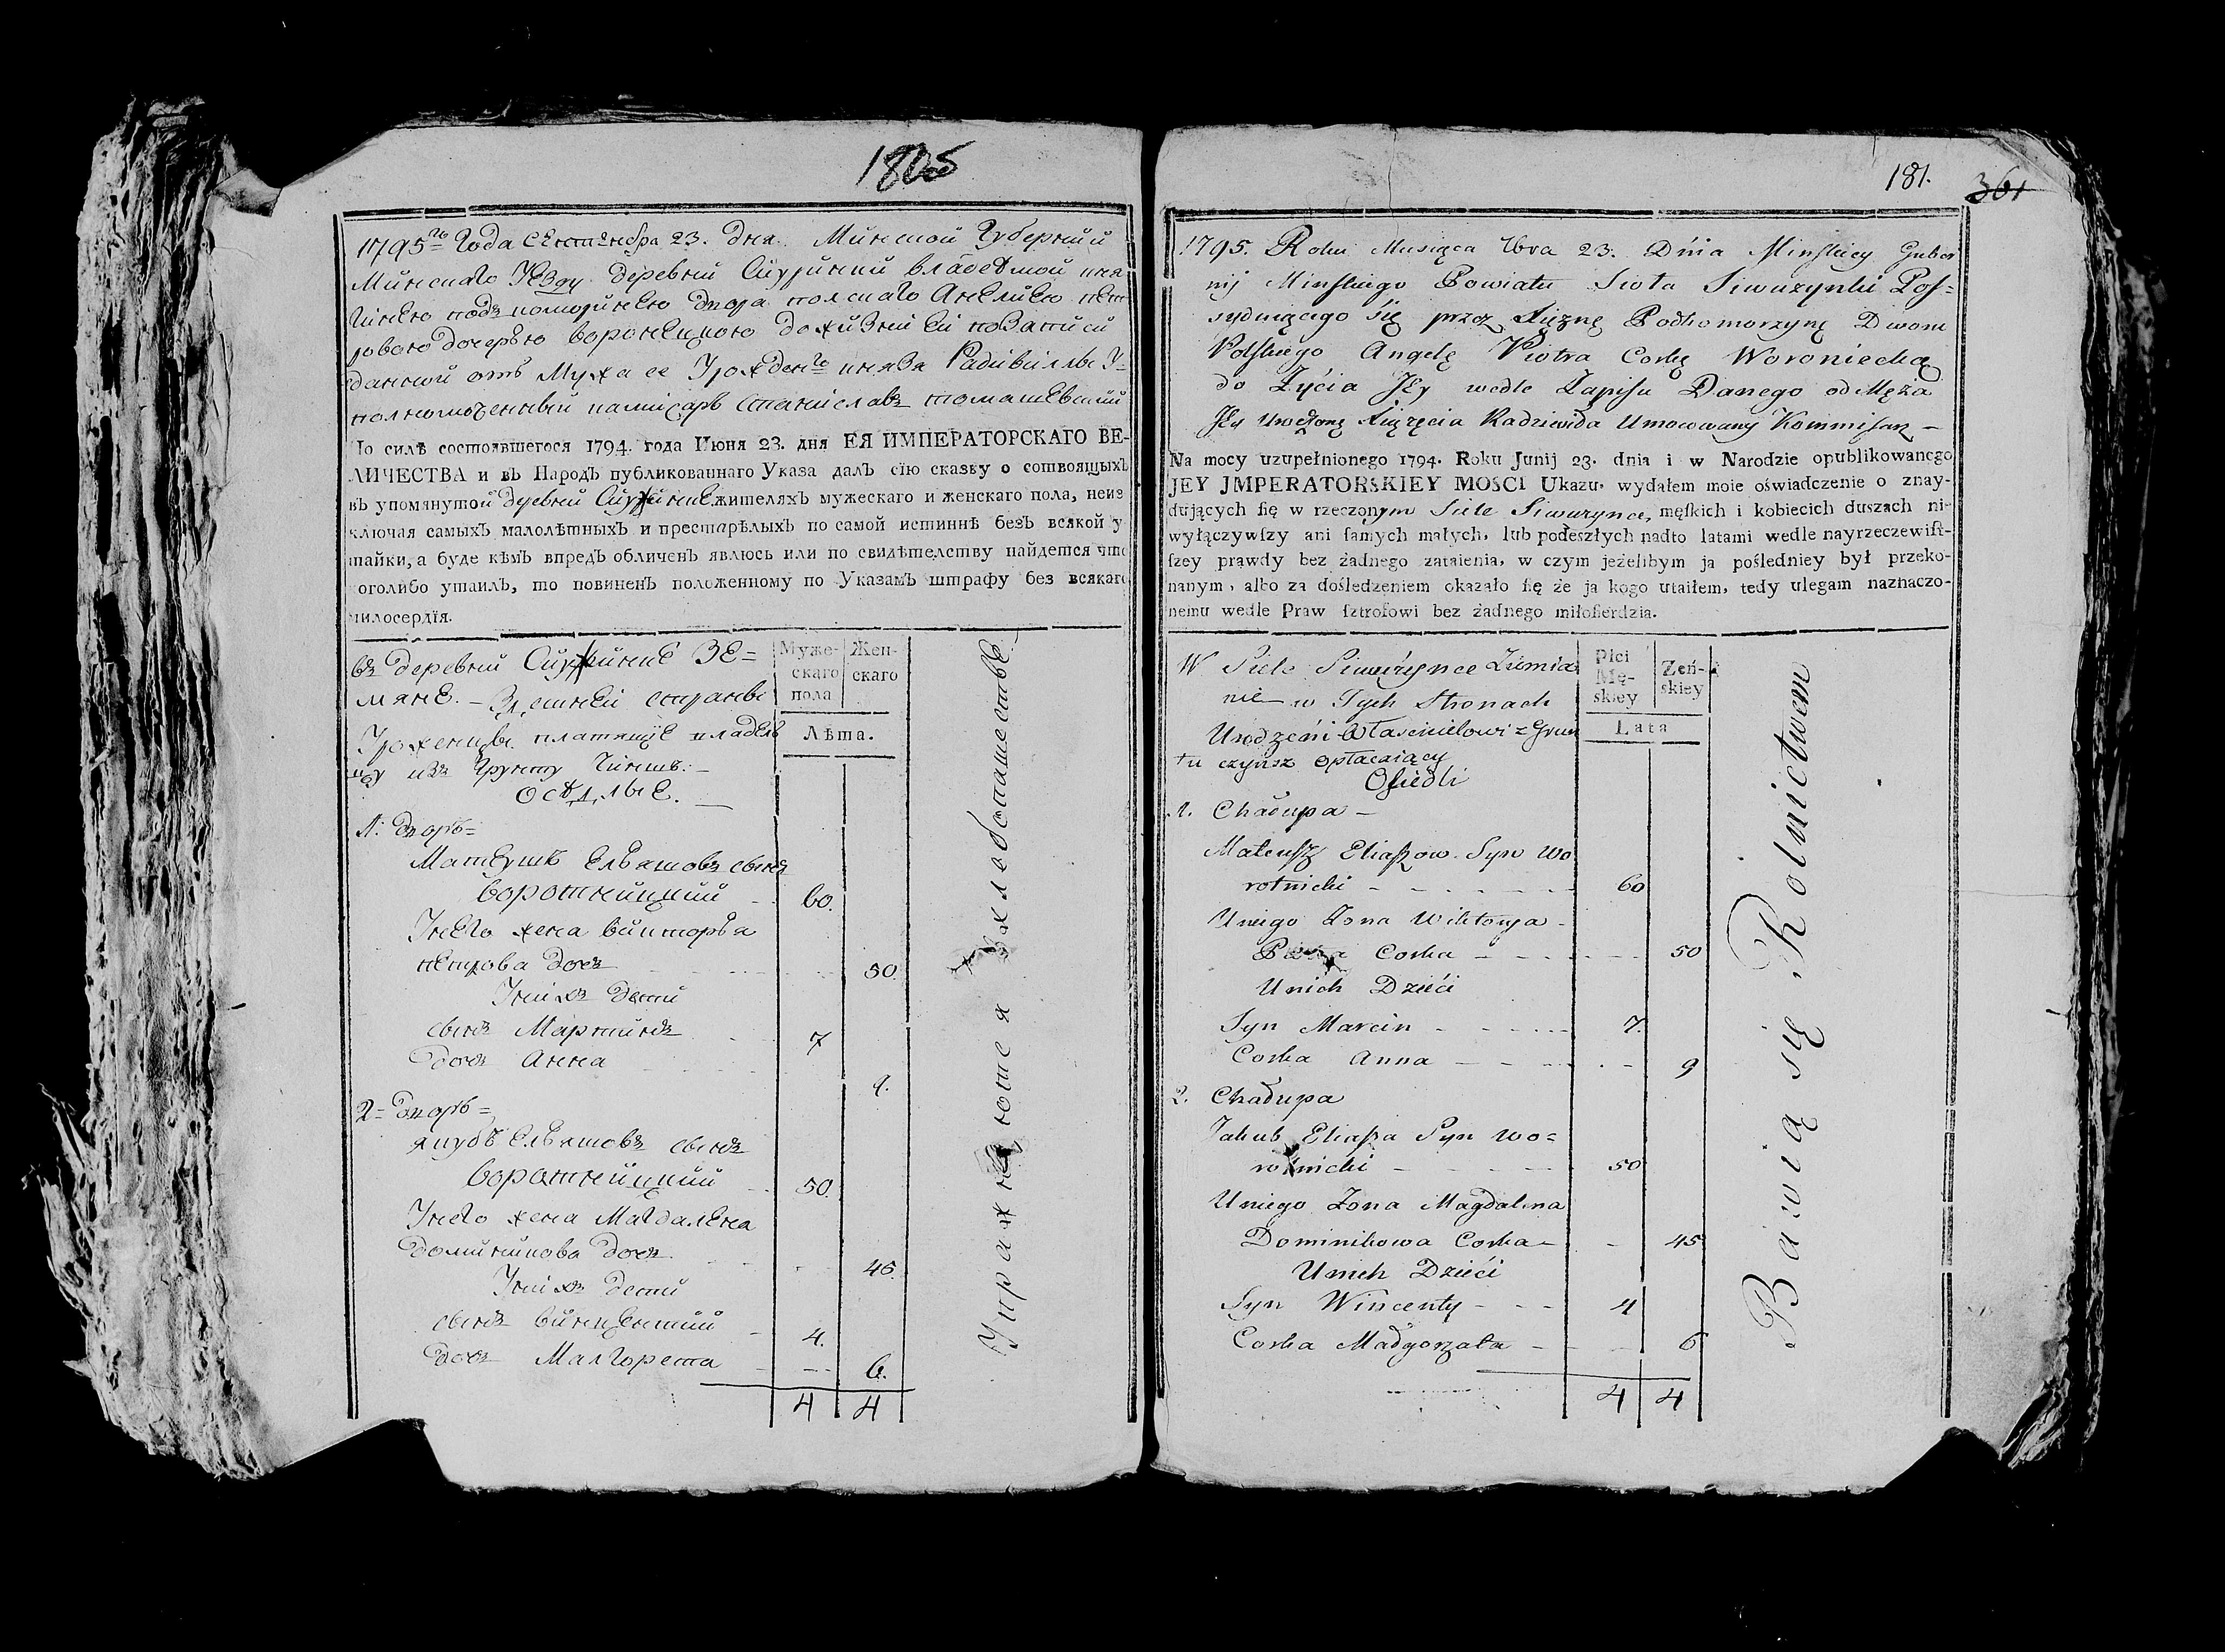 1795го Года Сентенебра 23. дня Минской Губерний
Минского Уезду деревни владеемой кня
гинею подкоморинею двора полского Анелиею пет
ровою дочерью воронецкою до живний ей по записи
данной отъ мужа ее Урожденго князя Радивилы У=
полномоченный камисаръ Станиславъ томашевский
По силѣ состоявшегося 1794. года Июня 23. дня ЕЯ ИМПЕРАТОРСКАГО ВЕ-
ЛИЧЕСТВА и въ Народъ публикованнаго Указа далъ сїю сказку о сотвоящыхъ
въ упомянутой деревни жителяхъ мужескаго и женскаго пола, неиз
ключая самыхъ малолѣтныхъ и престарѣлыхъ по самой истиннѣ безъ всякой у
тайки, а буде кѣмъ впредъ обличенъ явлюсь или по свидѣтелству найдется что
оголибо утаилъ, то повиненъ положенному по Указамъ штрафу без всякаго
милосердїя.
въ деревни зе=
мяне. — здешней страны
Уроженцы платящие владель
цу изъ грунту Чиншъ. —
оседлые. —
Муже-
скаго
пола
Жен-
скаго
Лѣта.
1: дворъ=
Матеушъ Ельяшовъ сынъ
воротницкий 60.
Унего жена викторья
петрова дочъ 50.
Унихъ дети
сынъ Мартинъ 7
дочъ Анна 9.
2= дворъ=
якубъ Ельяшовъ сынъ
воротницкий 50.
Унего жена Магдалена
доминикова дочъ 45.
Унихъ дети
сынъ винцентий 4.
дочъ Малгорета 6.
4 4
181.
361
1795. Roku Miesiąca 7bra 23. Dnia Minskiey Guber
nij Minskiego Powiatu Sioła Siwurynki Pos=
syduiącego się przez Xiężnę Podkomorzynę Dworu
Polskiego Angelę Piotra Corkę Woroniecką
do Życia Jey wedle Zapisu Danego od Męża
Jey Xiążęcia Radziwiła Umocowany Kommisarz —
Na mocy uzupełnionego 1794. Roku Junij 23. dnia i w Narodzie opublikowanego
JEY JMPERATORSKIEY MOSCI Ukazu, wydałem moie oświadczenie o znay-
duiących się w rzeczonym Siele Siwurynce, męskich i kobiecich duszach ni-
wyłączywszy ani samych małych, lub podeszłych nadto latami wedle nayrzeczewist-
szey prawdy bez żadnego zataienia, w czym jeżelibym ja pośledniey był przeko-
nanym, albo za dośledzeniem okazało się że ja kogo utaiłem, tedy ulegam naznaczo-
nemu wedle Praw sztrofowi bez żadnego miłosierdzia.
W Siele Siwurynce Ziemia
nie w Tych Stronach
Urodzeni Własicielowi z Grun
tu czynsz opłacaiący
Osiedli
Płci
Mę-
skiey
Żeń-
skiey
Lata
1. Chałupa —
Mateusz Eliaszow Syn Wo
rotnicki 60
Uniego Żona Wiktorya
Corka 50
Unich Dzieći
Syn Marcin 7.
Corka Anna 9
2. Chałupa
Jakub Eliasza Syn Wo=
rotnicki 50
Uniego Żona Magdalena
Dominikowa Corka 45
Unich Dzieći
Syn Wincenty 4
Corka Małgorzata 6
4 4
Bawią się Rolnictwem